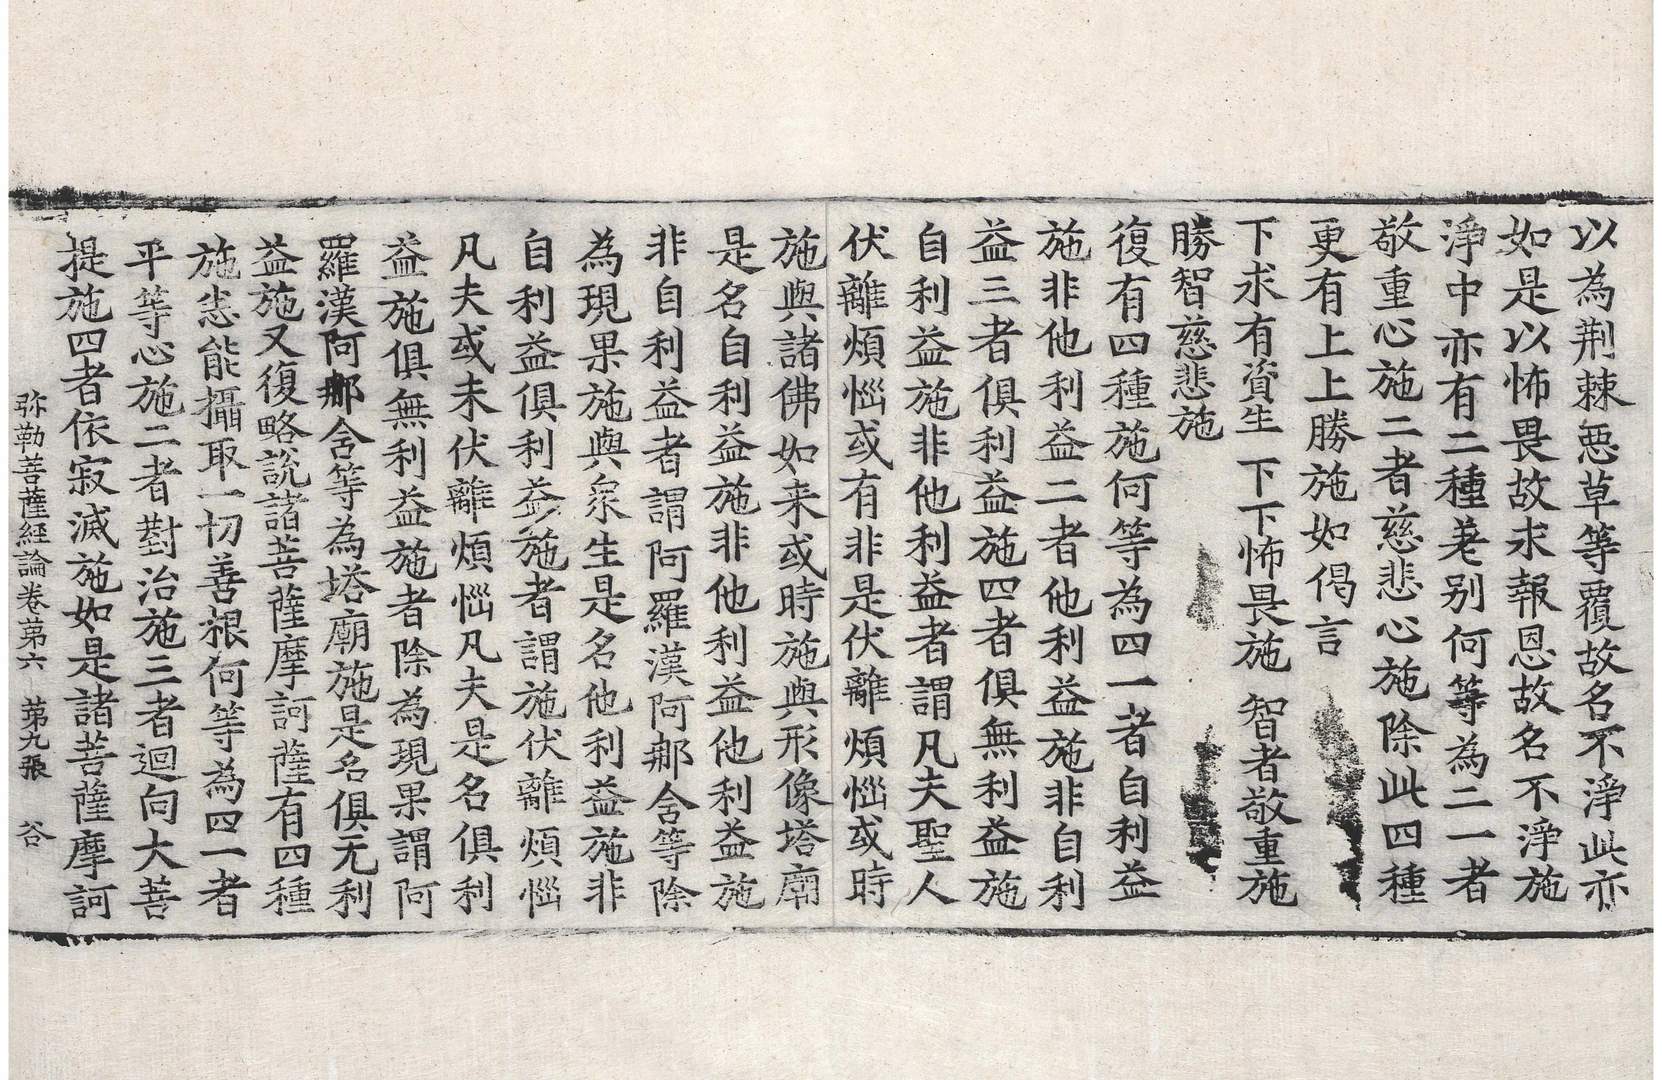 以為荆棘惡草等覆故名不淨此亦
如是以怖畏故求報恩故名不淨施
淨中亦有二種差别何等為二一者
敬重心施二者慈悲心施除此四種
更有上上勝施如偈言
下求有資生　下下怖畏施　智者敬重施
勝智慈悲施
復有四種施何等為四一者自利益
施非他利益二者他利益施非自利
益三者俱利益施四者俱無利益施
自利益施非他利益者謂凡夫聖人
伏離煩惱或有非是伏離煩惱或時
施與諸佛如来或時施與形像塔廟
是名自利益施非他利益他利益施
非自利益者謂阿羅漢阿那含等除
為現果施與衆生是名他利益施非
自利益俱利益施者謂施伏離煩惱
凡夫或未伏離煩惱凡夫是名俱利
益施俱無利益施者除為現果謂阿
羅漢阿那含等為塔廟施是名俱无利
益施又復略說諸菩薩摩訶薩有四種
施悉能攝取一切善根何等為四一者
平等心施二者對治施三者迴向大菩
提施四者依寂滅施如是諸菩薩摩訶
弥勒菩薩經論卷苐六　苐九張　谷